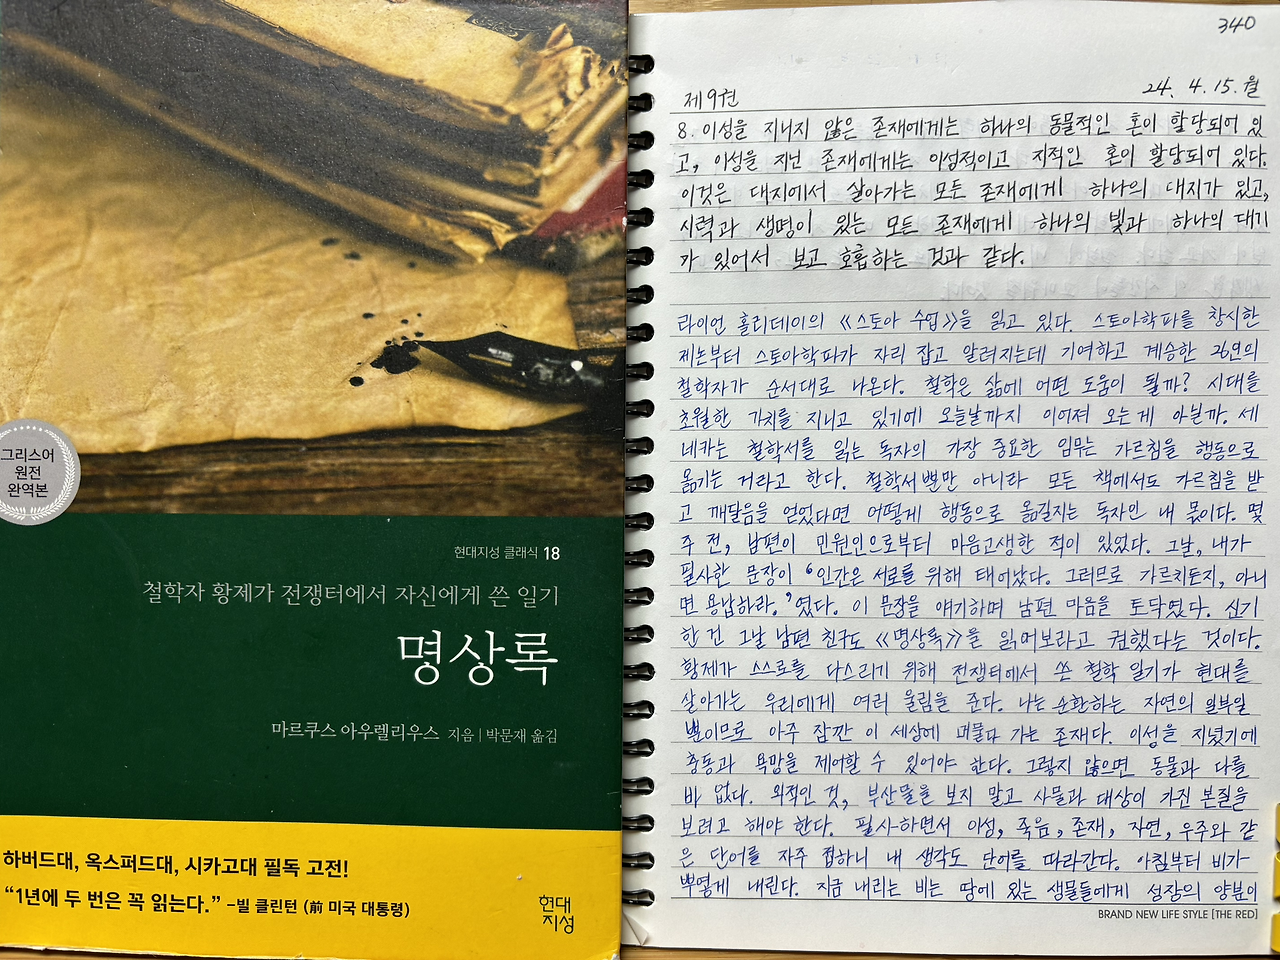 그리스어
원전
완역본
현대지성 클래식 18
철학자 황제가 전쟁터에서 자신에게 쓴 일기
명상록
마르쿠스 아우렐리우스 지음 | 박문재 옮김
하버드대, 옥스퍼드대, 시카고대 필독 고전!
“1년에 두 번은 꼭 읽는다.” –빌 클린턴 (前 미국 대통령)
현대
지성
340
제9권
24. 4. 15. 월
8. 이성을 지니지 않은 존재에게는 하나의 동물적인 혼이 할당되어 있
고, 이성을 지닌 존재에게는 이성적이고 지적인 혼이 할당되어 있다.
이것은 대지에서 살아가는 모든 존재에게 하나의 대지가 있고,
시력과 생명이 있는 모든 존재에게 하나의 빛과 하나의 대기
가 있어서 보고 호흡하는 것과 같다.
라이언 홀리데이의 《스토아 수업》을 읽고 있다. 스토아학파를 창시한
제논부터 스토아학파가 자리 잡고 알려지는데 기여하고 계승한 26연의
철학자가 순서대로 나온다. 철학은 삶에 어떤 도움이 될까? 시대를
초월한 가치를 지니고 있기에 오늘날까지 이어져 오는게 아닐까. 세
네카는 철학서를 읽는 독자의 가장 중요한 임무는 가르침을 행동으로
옮기는 거라고 한다. 철학서뿐만 아니라 모든 책에서도 가르침을 받
고 깨달음을 얻었다면 어떻게 행동으로 옮길지는 독자인 내 몫이다. 몇
주 전, 남편이 민원인으로부터 마음고생한 적이 있었다. 그날, 내가
필사한 문장이 '인간은 서로를 위해 태어났다. 그러므로 가르치든지, 아니
면 용납하라.'였다. 이 문장을 얘기하며 남편 마음을 토닥였다. 신기
한 건 그날 남편 친구도 《명상록》을 읽어보라고 권했다는 것이다.
황제가 스스로를 다스리기 위해 전쟁터에서 쓴 철학 일기가 현대를
살아가는 우리에게 여러 울림을 준다. 나는 순환하는 자연의 일부일
뿐이므로 아주 잠깐 이 세상에 머물다 가는 존재다. 이성을 지녔기에
충동과 욕망을 제어할 수 있어야 한다. 그렇지 않으면 동물과 다를
바 없다. 외적인 것, 부산물을 보지 말고 사물과 대상이 가진 본질을
보려고 해야 한다. 필사하면서 이성, 죽음, 존재, 자연, 우주와 같
은 단어를 자주 접하니 내 생각도 단어를 따라간다. 아침부터 비가
뿌옇게 내린다. 지금 내리는 비는 땅에 있는 생물들에게 성장의 양분이
BRAND NEW LIFE STYLE [THE RED]